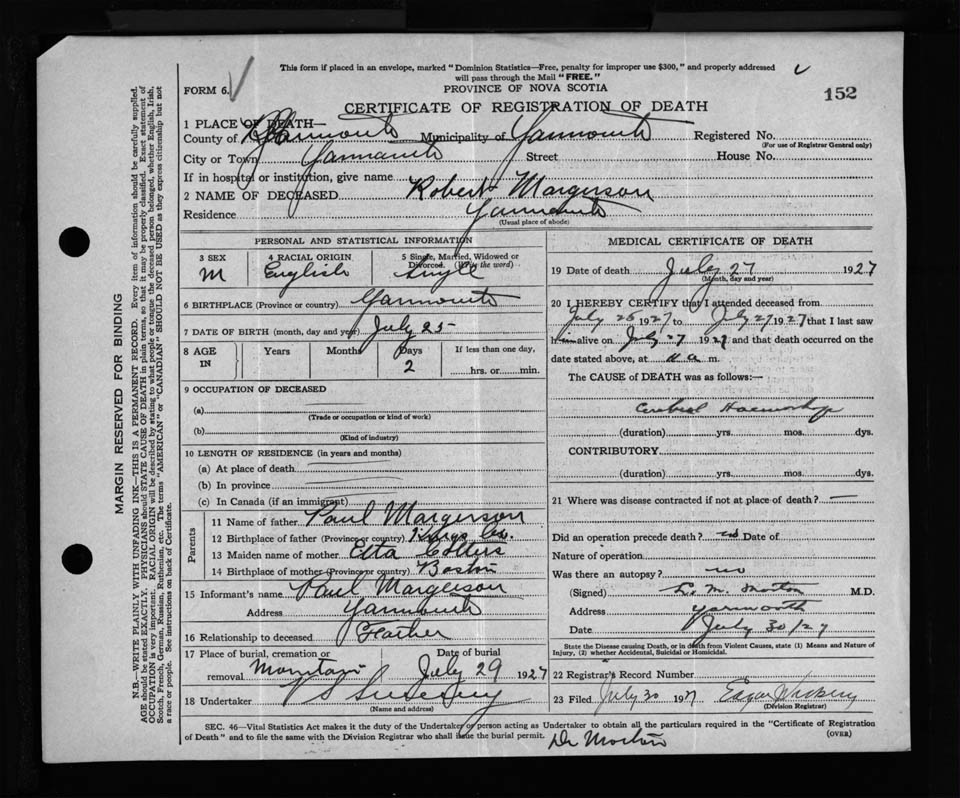 This form if placed in an envelope, marked "Dominion Statistics—Free, penalty for improper use $300," and properly addressed
will pass through the Mail "FREE."
FORM 6.
PROVINCE OF NOVA SCOTIA
152
CERTIFICATE OF REGISTRATION OF DEATH
1 PLACE OF DEATH—
County of Yarmouth Municipality of Yarmouth Registered No.
(For use of Registrar General only)
City or Town Yarmouth Street House No.
If in hospital or institution, give name
2 NAME OF DECEASED Robert Margerson
Residence Yarmouth
(Usual place of abode)
PERSONAL AND STATISTICAL INFORMATION
3 SEX 4 RACIAL ORIGIN 5 Single, Married, Widowed or Divorced. (Write the word)
M English Single
6 BIRTHPLACE (Province or country) Yarmouth
7 DATE OF BIRTH (month, day and year) July 25
8 AGE IN Years Months Days If less than one day,
2 hrs. or min.
9 OCCUPATION OF DECEASED
(a)
(Trade or occupation or kind of work)
(b)
(Kind of industry)
10 LENGTH OF RESIDENCE (in years and months)
(a) At place of death
(b) In province
(c) In Canada (if an immigrant)
Parents
11 Name of father Paul Margerson
12 Birthplace of father (Province or country) Kings Co.
13 Maiden name of mother Etta
14 Birthplace of mother (Province or country) Boston
15 Informant's name Paul Margerson
Address Yarmouth
16 Relationship to deceased Father
17 Place of burial, cremation or removal Date of burial
July 29 1927
18 Undertaker V S Sweeny
(Name and address)
MEDICAL CERTIFICATE OF DEATH
19 Date of death July 27 1927
(Month, day and year)
20 I HEREBY CERTIFY that I attended deceased from
July 25 1927 to July 27 1927 that I last saw
him alive on July 27 1927 and that death occurred on the
date stated above, at m.
The CAUSE of DEATH was as follows:—
Cerebral Haemorrhage
(duration) yrs. mos. dys.
CONTRIBUTORY
(duration) yrs. mos. dys.
21 Where was disease contracted if not at place of death? —
Did an operation precede death? no Date of
Nature of operation
Was there an autopsy? no
(Signed) L. M. Morton M.D.
Address Yarmouth
Date July 30/27
State the Disease causing Death, or in death from Violent Causes, state (1) Means and Nature of
Injury, (2) whether Accidental, Suicidal or Homicidal.
22 Registrar's Record Number
23 Filed July 30 1927 Edgar
(Division Registrar)
SEC. 46—Vital Statistics Act makes it the duty of the Undertaker or person acting as Undertaker to obtain all the particulars required in the "Certificate of Registration
of Death" and to file the same with the Division Registrar who shall issue the burial permit.
(OVER)
Dr Morton
MARGIN RESERVED FOR BINDING
N.B.—WRITE PLAINLY WITH UNFADING INK—THIS IS A PERMANENT RECORD. Every item of information should be carefully supplied.
AGE should be stated EXACTLY. PHYSICIANS should STATE CAUSE OF DEATH in plain terms, so that it may be properly classified. Exact statement of
OCCUPATION is very important. RACIAL ORIGIN will be described by stating to what people or tongue the deceased person belonged, whether English, Irish,
Scotch, French, German, Russian, Ruthenian, etc. The terms "AMERICAN" or "CANADIAN" SHOULD NOT BE USED as they express citizenship but not
a race or people. See instructions on back of Certificate.